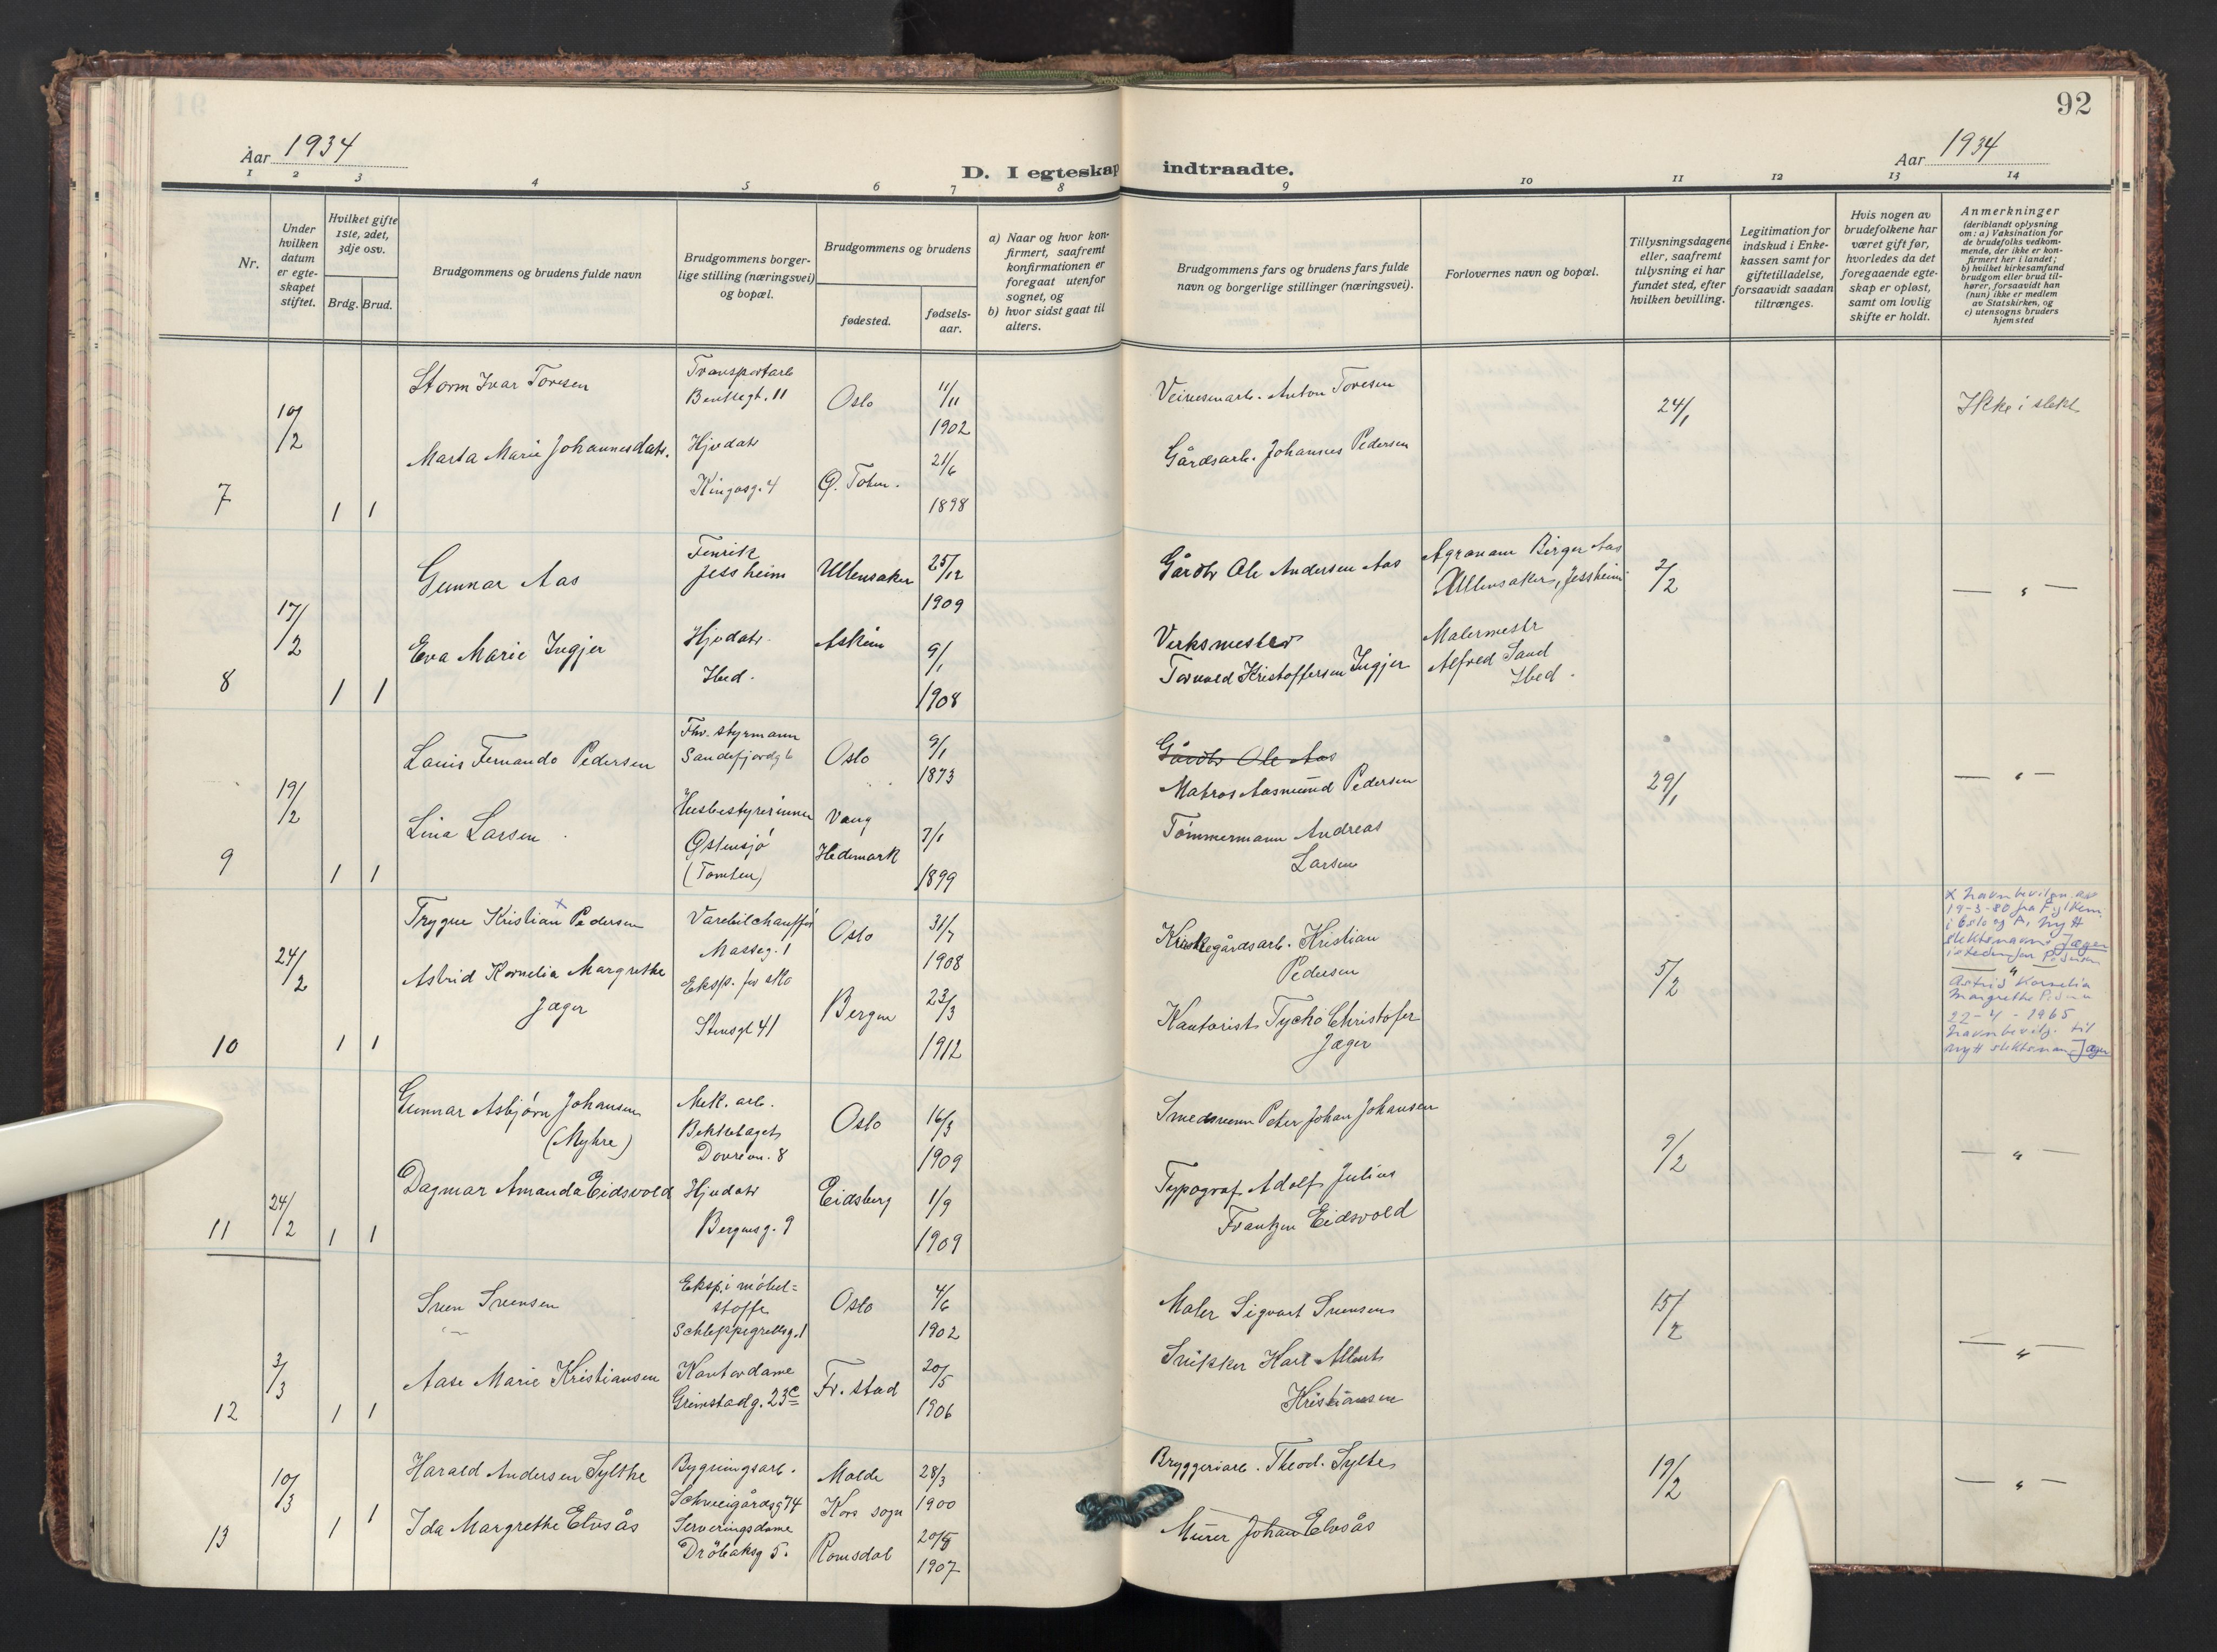 92
Aar 1934
Aar 1934
D. I egteskap indtraadte.
1 2 3 4 5 6 7 8 9 10 11 12 13 14
Nr.
Under hvilken datum er egteskapet stiftet.
Hvilket gifte 1ste, 2det, 3dje osv.
Brdg. Brud.
Brudgommens og brudens fulde navn
Brudgommens borgerlige stilling (næringsvei) og bopæl.
Brudgommens og brudens
fødested.
fødselsaar.
a) Naar og hvor konfirmert, saafremt konfirmationen er foregaat utenfor sognet, og
b) hvor sidst gaat til alters.
Brudgommens fars og brudens fars fulde navn og borgerlige stillinger (næringsvei).
Forlovernes navn og bopæl.
Tillysningsdagene eller, saafremt tillysning ei har fundet sted, efter hvilken bevilling.
Legitimation for indskud i Enkekassen samt for giftetilladelse, forsaavidt saadan tiltrænges.
Hvis nogen av brudefolkene har været gift før, hvorledes da det foregaaende egteskap er opløst, samt om lovlig skifte er holdt.
Anmerkninger
(deriblandt oplysning om: a) Vaksination for de brudefolks vedkommende, der ikke er konfirmert her i landet;
b) hvilket kirkesamfund brudgom eller brud tilhører, forsaavidt han (hun) ikke er medlem av Statskirken, og
c) utensogns bruders hjemsted
7 10/2 1 1
Storm Ivar Toresen
Transportarb
gt. 11
Oslo
11/11
1902
Anton Toresen
24/1
Ikke i slekt
Marta Marie Johannesdatr.
Hjvdatr
Kingosg. 4
Ø. Toten.
21/6
1898
Gårdsarb. Johannes Pedersen
8 17/2 1 1
Gunnar Aas
Fenrik
Jessheim
Ullensaker
25/12
1909
Gårdbr Ole Andersen Aas
Agronom Birger Aas
Ullensaker, Jessheim
2/2
— " —
Eva Marie Ingjer
Hjvdatr.
Ibed.
Askim
9/1
1908
Verksmester
Torvald Kristoffersen Ingjer
Malermestr
Alfred Sand
Ibed.
9 19/2 1 1
Louis Fernando Pedersen
Fhv. styrmann
Sandefjordg 6
Oslo
9/1
1873
Gårdbr Ole Aas
Matros Aasmund Pedersen
29/1
— " —
Lina Larsen
Husbestyrerinne
Østensjø
(Tomten)
Vang
Hedemark
3/1
1899
Tømmermann Andreas
Larsen
10 24/2 1 1
Trygve Kristian Pedersen
x
Varebilchauffør
Masseg. 1
Oslo
31/7
1908
Kirkegårdsarb. Kristian
Pedersen
5/2
x Navnbevilgn. av
19-3-80 fra Fylkem.
i Oslo og A, nytt
slektsnavn Jæger
istedenfor Pedersen
— " —
Astrid Kornelia
Margrethe Pedersen
22-4-1965
navnbevilg. til
nytt slektsnavn Jæger
Astrid Kornelia Margrethe
Jæger
Eksp. for
Stensgt 41
Bergen
23/3
1912
Kontorist Tycho Christofer
Jæger
11 24/2 1 1
Gunnar Asbjørn Johansen
(Myhre)
Mek. arb.
Bekkelaget
Dovrevn. 8
Oslo
16/3
1909
Smedsvenn Peter Johan Johansen
9/2
— " —
Dagmar Amanda Eidsvold
Hjvdatr
Bergensg. 9
Eidsberg
1/9
1909
Typograf Adolf Julius
Frantzen Eidsvold
12 3/3 1 1
Sven Svensen
Eksp. i møbel=
stoffr
Schleppegrellsg. 1
Oslo
4/6
1902
Maler Sigvart Svensen
15/2
— " —
Aase Marie Kristiansen
Kontordame
Grimstadg. 23c
Fr. stad
20/5
1906
Snikker Karl Albert
Kristiansen
13 10/3 1 1
Harald Andersen Sylthe
Bygningsarb.
Schweigårdsg 74
Molde
28/3
1900
Bryggeriarb. Theod. Sylte
19/2
— " —
Ida Margrethe Elvsås
Serveringsdame
Drøbaksg 5.
Kors sogn
Romsdal
20/8
1907
Murer Johan Elvsås